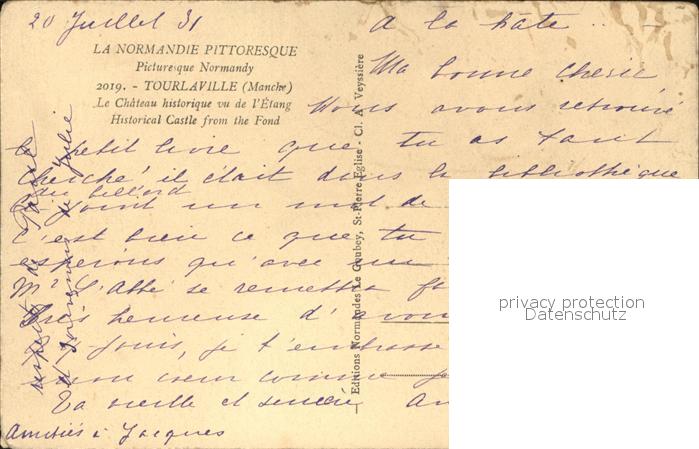 20 Juillet 31
A la hâte ...
LA NORMANDIE PITTORESQUE
Picturesque Normandy
2019. - TOURLAVILLE (Manche)
Le Château historique vu de l'Étang
Historical Castle from the Fond
Ma bonne chérie
Nous avons retrouvé
le petit livre que tu as tant
cherché il était dans la bibliothèque
du billard
joint un mot de
c'est bien ce que tu
espérons qu'avec un
Mr l'Abbé se remettra
Très heureuse d'avoir
je t'embrasse
mon cœur comme je
Ta vieille et sincère
Amitiés à Jacques
respects de
et souvenirs de Julie
Editions Normandes Le Goubey, St-Pierre Eglise - Cl. A. Veyssière
privacy protection
Datenschutz